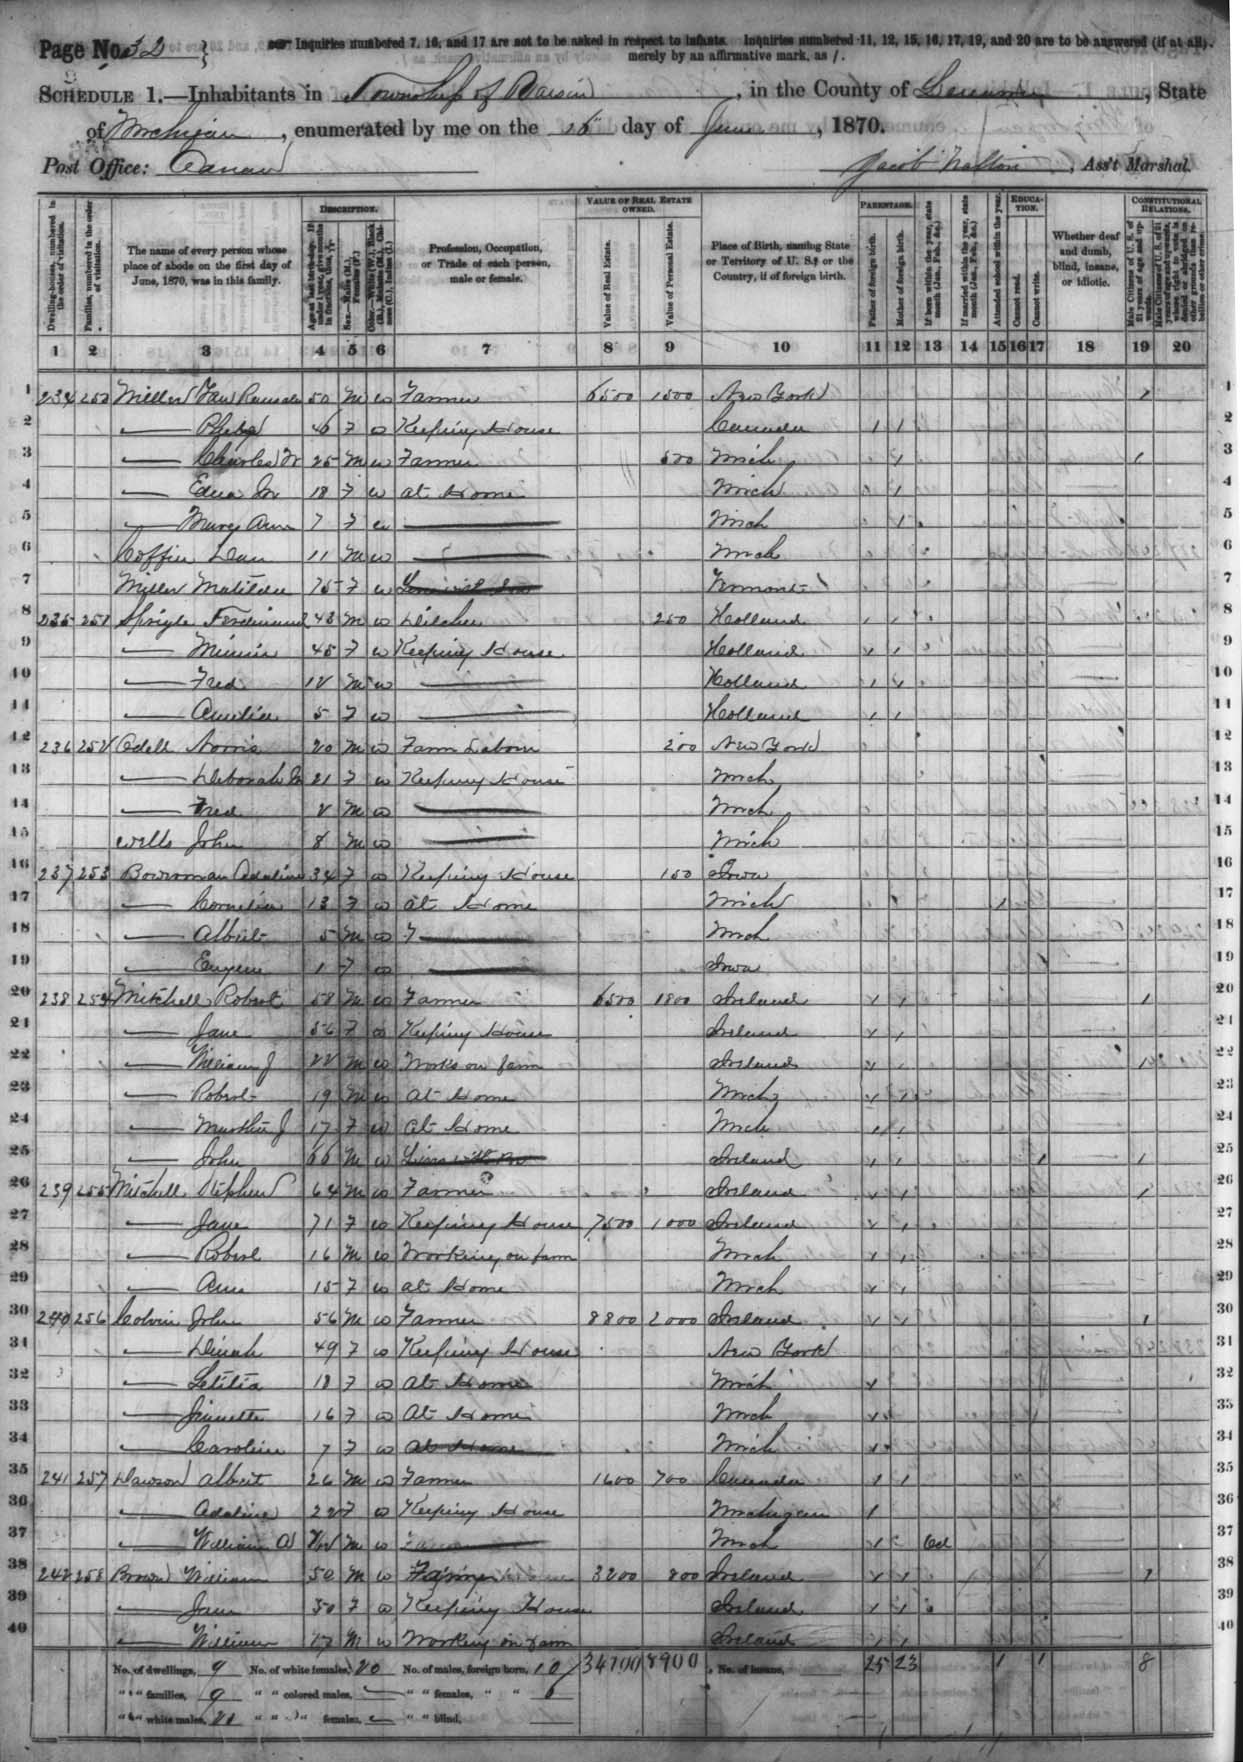 Page No. 32 } Inquiries numbered 7, 16, and 17 are not to be asked in respect to infants. Inquiries numbered 11, 12, 15, 16, 17, 19, and 20 are to be answered (if at all)
merely by an affirmative mark, as /.
SCHEDULE 1.—Inhabitants in Township of Raisin, in the County of Lenawee, State
of Michigan, enumerated by me on the day of June, 1870.
Post Office: Jacob Walton, Ass't Marshal.
DESCRIPTION. VALUE OF REAL ESTATE OWNED. PARENTAGE. EDUCATION. CONSTITUTIONAL RELATIONS.
Dwelling-houses, numbered in the order of visitation. Families, numbered in the order of visitation. The name of every person whose place of abode on the first day of June, 1870, was in this family. Profession, Occupation, or Trade of each person, male or female. Value of Real Estate. Value of Personal Estate. Place of Birth, naming State or Territory of U. S.; or the Country, if of foreign birth. Father of foreign birth. Mother of foreign birth. If born within the year, state month (Jan., Feb., &c.) If married within the year, state month (Jan., Feb., &c.) Attended school within the year. Cannot read. Cannot write. Whether deaf and dumb, blind, insane, or idiotic.
1 2 3 4 5 6 7 8 9 10 11 12 13 14 15 16 17 18 19 20
1 234 250 Miller Van Rensselaer 50 M W Farmer 6500 1500 New York 1
2 — Phebe 46 F W Keeping House Canada 1 1
3 — Charles W 25 M W Farmer 500 Mich 1 1
4 — Edna M 18 F W at Home Mich 1
5 — Mary Ann 7 F W — Mich 1
6 Coffin Dan 11 M W — Mich
7 Miller Matilda 75 F W Vermont
8 235 251 Ferdinand 43 M W Ditcher 250 Holland 1 1
9 — Minnie 45 F W Keeping House Holland 1 1
10 — Fred 12 M W — Holland 1 1
11 — Amelia 5 F W — Holland 1 1
12 236 252 Odell Norris 20 M W Farm Labour 200 New York
13 — Deborah M 21 F W Keeping House Mich
14 — Fred 2 M W — Mich
15 Wells John 8 M W — Mich
16 237 253 Bowman Adaline 34 F W Keeping House 150 Iowa
17 — Cornelia 13 F W at Home Mich 1
18 — Albert 5 M W — Mich
19 — Eugene 1 F W — Iowa
20 238 254 Mitchell Robert 58 M W Farmer 6500 1800 Ireland 1 1 1
21 — Jane 56 F W Keeping House Ireland 1 1
22 — William J 22 M W Works on farm Ireland 1 1 1
23 — Robert 19 M W at Home Mich 1 1
24 — Martha J 17 F W at Home Mich 1 1
25 — John 66 M W Ireland 1 1 1 1
26 239 255 Mitchell Stephen 64 M W Farmer Ireland 1 1 1
27 — Jane 71 F W Keeping House 7500 1000 Ireland 1 1
28 — Robert 16 M W Working on farm Mich 1 1
29 — Ann 15 F W at Home Mich 1 1
30 240 256 Colvin John 56 M W Farmer 8800 2000 Ireland 1 1 1
31 — Dinah 49 F W Keeping House New York
32 — Letitia 18 F W at Home Mich 1
33 — Jennette 16 F W at Home Mich 1
34 — Caroline 7 F W at Home Mich 1
35 241 257 Dawson Albert 26 M W Farmer 1600 700 Canada 1 1
36 — Adaline 22 F W Keeping House Michigan 1
37 — William A M W Mich 1
38 242 258 Brown William 50 M W Farmer 3200 800 Ireland 1 1 1
39 — Jane 50 F W Keeping House Ireland 1 1
40 — William 17 M W Working on Farm Ireland 1 1
No. of dwellings, 9 No. of white females, 20 No. of males, foreign born, 10 34100 8900 No. of insane, 25 23 1 1 8
" " families, 9 " " colored males, — " " females, " " 6
" " white males, 20 " " " females, — " " blind,